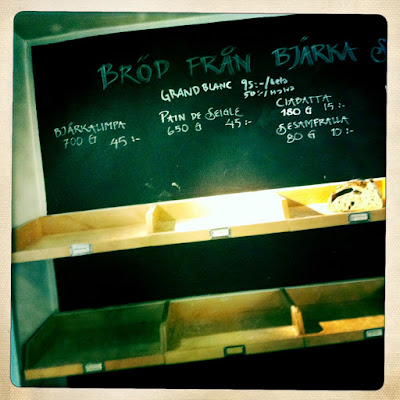 BRÖD FRÅN BJÄRKA S
GRAND BLANC 95:-/HELA
50:-/HALVA
BJÄRKALIMPA
700 G 45:-
PAIN DE SEIGLE
650 G 45:-
CIABATTA
180 G 15:-
SESAMFRALLA
80 G 10:-